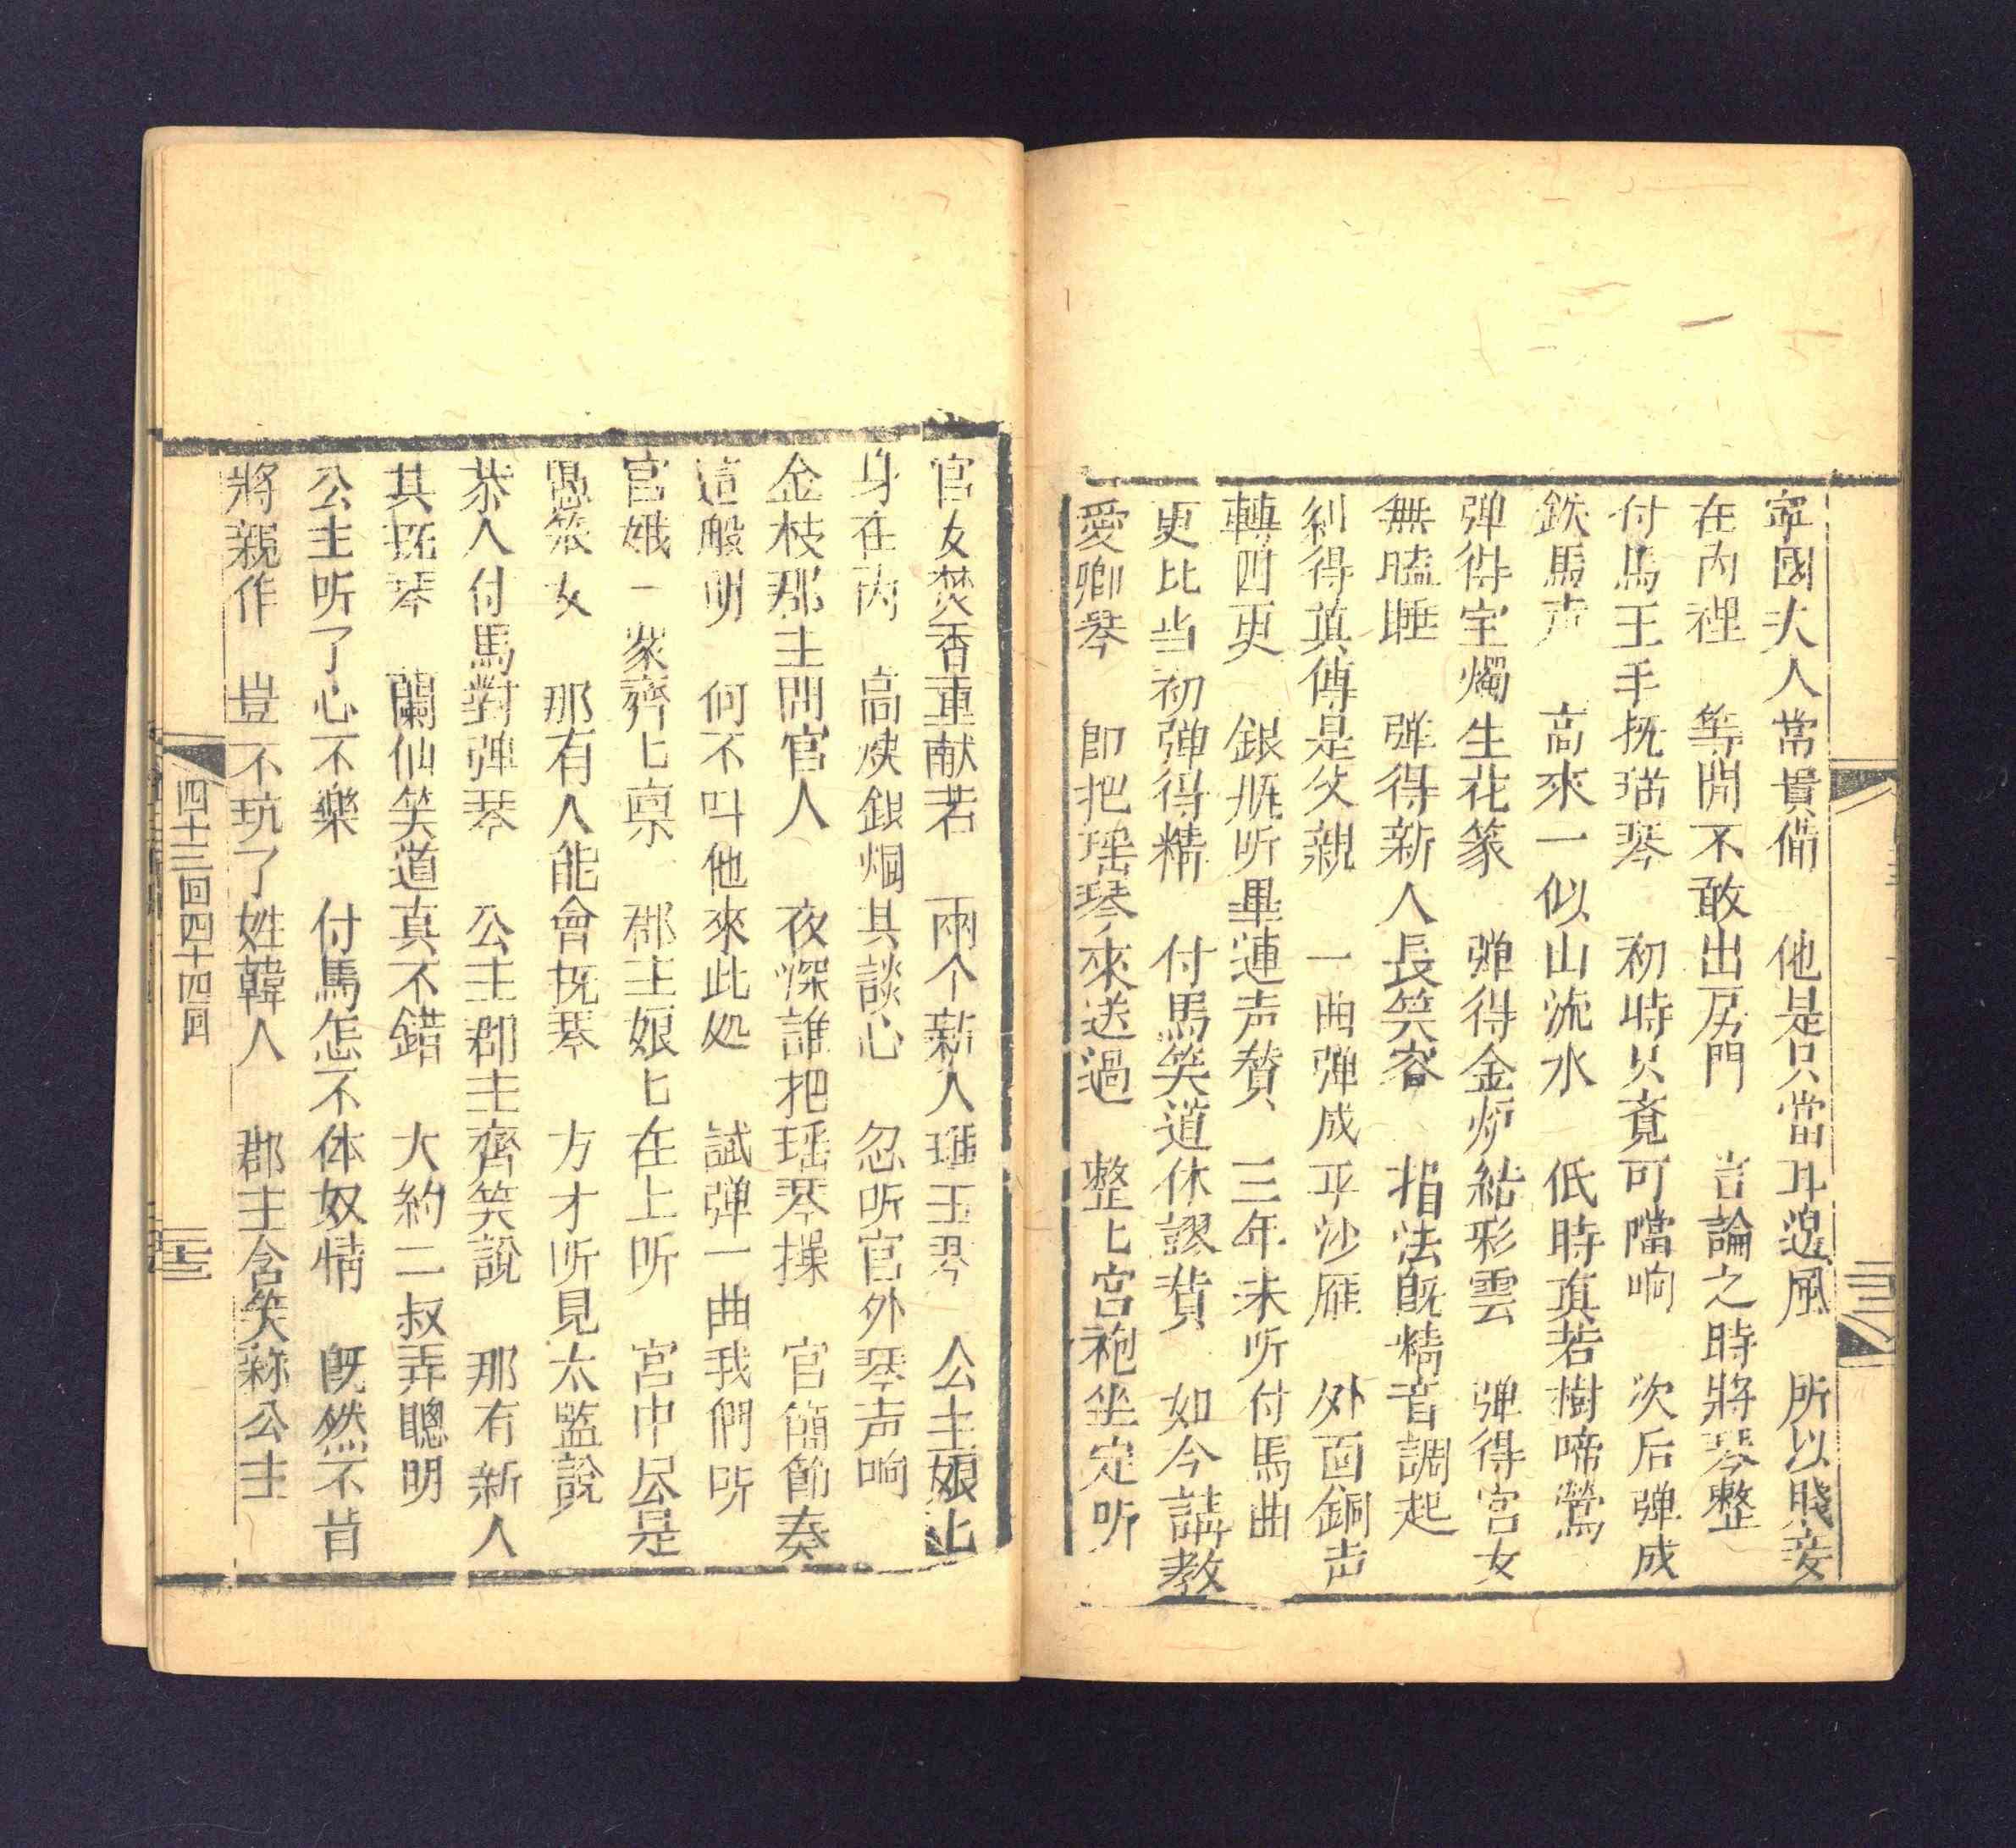 寕國夫人常貴偹　他是只當耳邉風　所以賤妾
在內裡　等閒不敢出房門　言論之時將琴整
付馬王手抚瑶琴　初時只竟可噹响　次后弹成
鉄馬声　高來一似山流水　低時真若樹啼鶯
弹得宝燭生花篆　弹得金炉結彩雲　弹得宮女
無瞌睡　弹得新人長笑容　指法旣精音調起
刹得真傳是父親　一曲弹成平沙雁　外面銅声
轉四更　銀瓶听畢連声賛　三年未听付馬曲
更比当初弹得精　付馬笑道休謬賛　如今請教
愛卿琴　即把瑶琴來送過　整匕宮袍坐定听
官女焚香重献若　兩个新人理玉琴　公主娘匕
身在內　高焿銀烟其談心　忽听官外琴声响
金枝郡主問官人　夜深誰把瑶琴操　官簡節奏
這般明　何不叫他來此処　試弹一曲我們听
官娥一衆齊匕禀　郡主娘匕在上听　宮中尽是
愚笨女　那有人能會抚琴　方才听見太監說
恭人付馬對弹琴　公主郡主齊笑說　那有新人
其抚琴　蘭仙笑道真不錯　大約二叔弄聰明
公主听了心不樂　付馬怎不体奴情　旣然不肯
將親作　豈不坑了姓韓人　郡主含笑称公主
四十三回四十四回